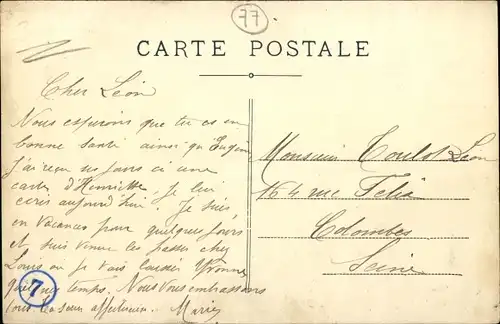 77
CARTE POSTALE
Cher Léon
Nous esperons que tu es en
bonne santé ainsi qu'Eugene
J'ai reçu ces jours ci une
carte d'Henriette, je lui
ecris aujourd'hui. Je suis
en vacances pour quelques jours
et suis venue les passer chez
Louis ou je vais laisser Yvonne
quelque temps. Nous vous embrassons
tous Marie
7
Monsieur Léon
16 rue Felix
Colombes
Seine